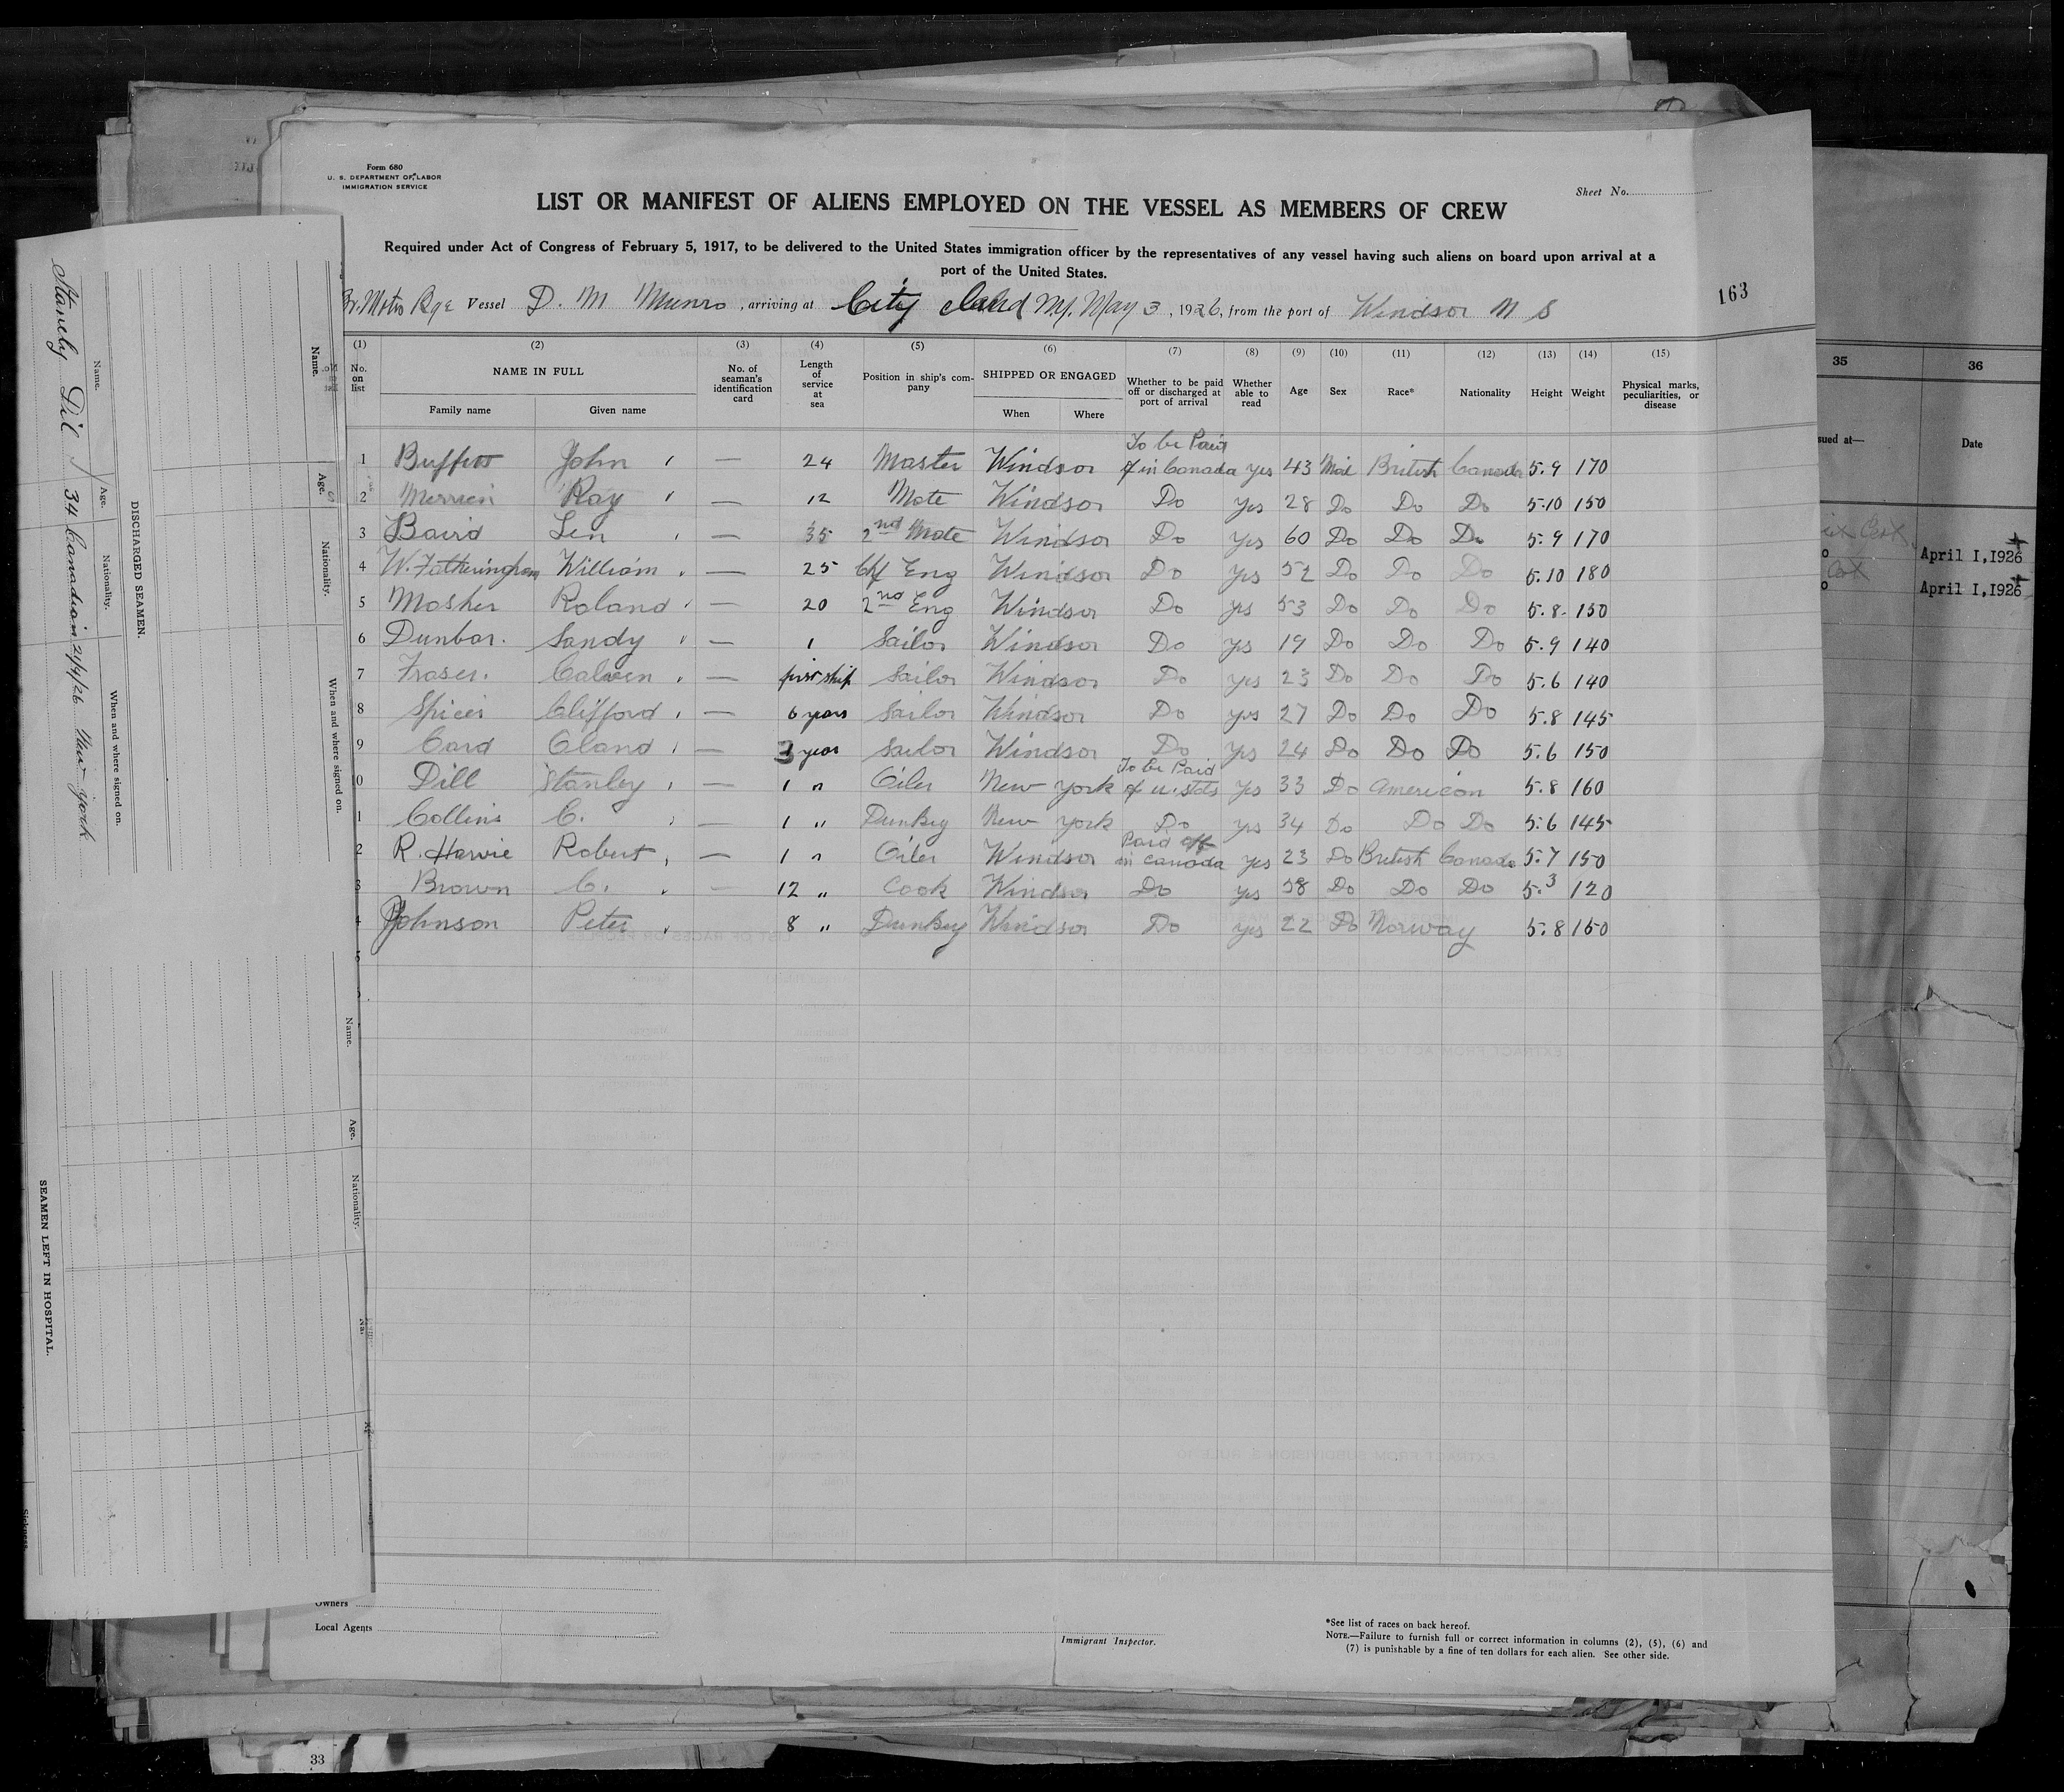 Form 680
U. S. DEPARTMENT OF LABOR
IMMIGRATION SERVICE
Sheet No.
LIST OR MANIFEST OF ALIENS EMPLOYED ON THE VESSEL AS MEMBERS OF CREW
Required under Act of Congress of February 5, 1917, to be delivered to the United States immigration officer by the representatives of any vessel having such aliens on board upon arrival at a
port of the United States.
Vessel D. M Munro, arriving at City Island N.Y. May 3, 1926, from the port of Windsor N S
163
(1) (2) (3) (4) (5) (6) (7) (8) (9) (10) (11) (12) (13) (14) (15)
No. on list NAME IN FULL Family name Given name No. of seaman's identification card Length of service at sea Position in ship's company SHIPPED OR ENGAGED When Where Whether to be paid off or discharged at port of arrival Whether able to read Age Sex Race* Nationality Height Weight Physical marks, peculiarities, or disease
1 John — 24 Master Windsor To be Paid of in Canada yes 43 British Canada 5.9 170
2 Ray — 12 Mate Windsor Do yes 28 Do Do Do 5.10 150
3 Baird Len — 35 2nd Mate Windsor Do yes 60 Do Do Do 5.9 170
4 W. Fatheringham William — 25 Chf Eng Windsor Do yes 52 Do Do Do 5.10 180
5 Mosher Roland — 20 2nd Eng Windsor Do yes 53 Do Do Do 5.8 150
6 Dunbar. Sandy — 1 Sailor Windsor Do yes 19 Do Do Do 5.9 140
7 Fraser. Calven — first ship Sailor Windsor Do yes 23 Do Do Do 5.6 140
8 Spicer Clifford — 6 years Sailor Windsor Do yes 27 Do Do Do 5.8 145
9 Card Oland — 3 year Sailor Windsor Do yes 24 Do Do Do 5.6 150
0 Dill Stanley — 1 " Oiler New York To be Paid of u. stats yes 33 Do American 5.8 160
1 Collins C. — 1 " Dunkey New York Do yes 34 Do Do Do 5.6 145
2 R. Harvie Robert — 1 " Oiler Windsor Paid off in Canada yes 23 Do British Canada 5.7 150
3 Brown C. — 12 " Cook Windsor Do yes 58 Do Do Do 5.3 120
4 Johnson Peter 8 " Dunkey Windsor Do yes 22 Do Norway 5.8 150
Owners
Local Agents
Immigrant Inspector.
*See list of races on back hereof.
NOTE.—Failure to furnish full or correct information in columns (2), (5), (6) and
(7) is punishable by a fine of ten dollars for each alien. See other side.
Name. Age. Nationality. When and where signed on.
DISCHARGED SEAMEN.
Name. Age. Nationality. When and where signed on.
Stanely Dil 34 Canadian 21/4/26 New york
Name. Age. Nationality.
SEAMEN LEFT IN HOSPITAL.
35 36
sued at— Date
April 1,1926
April 1,1926
33